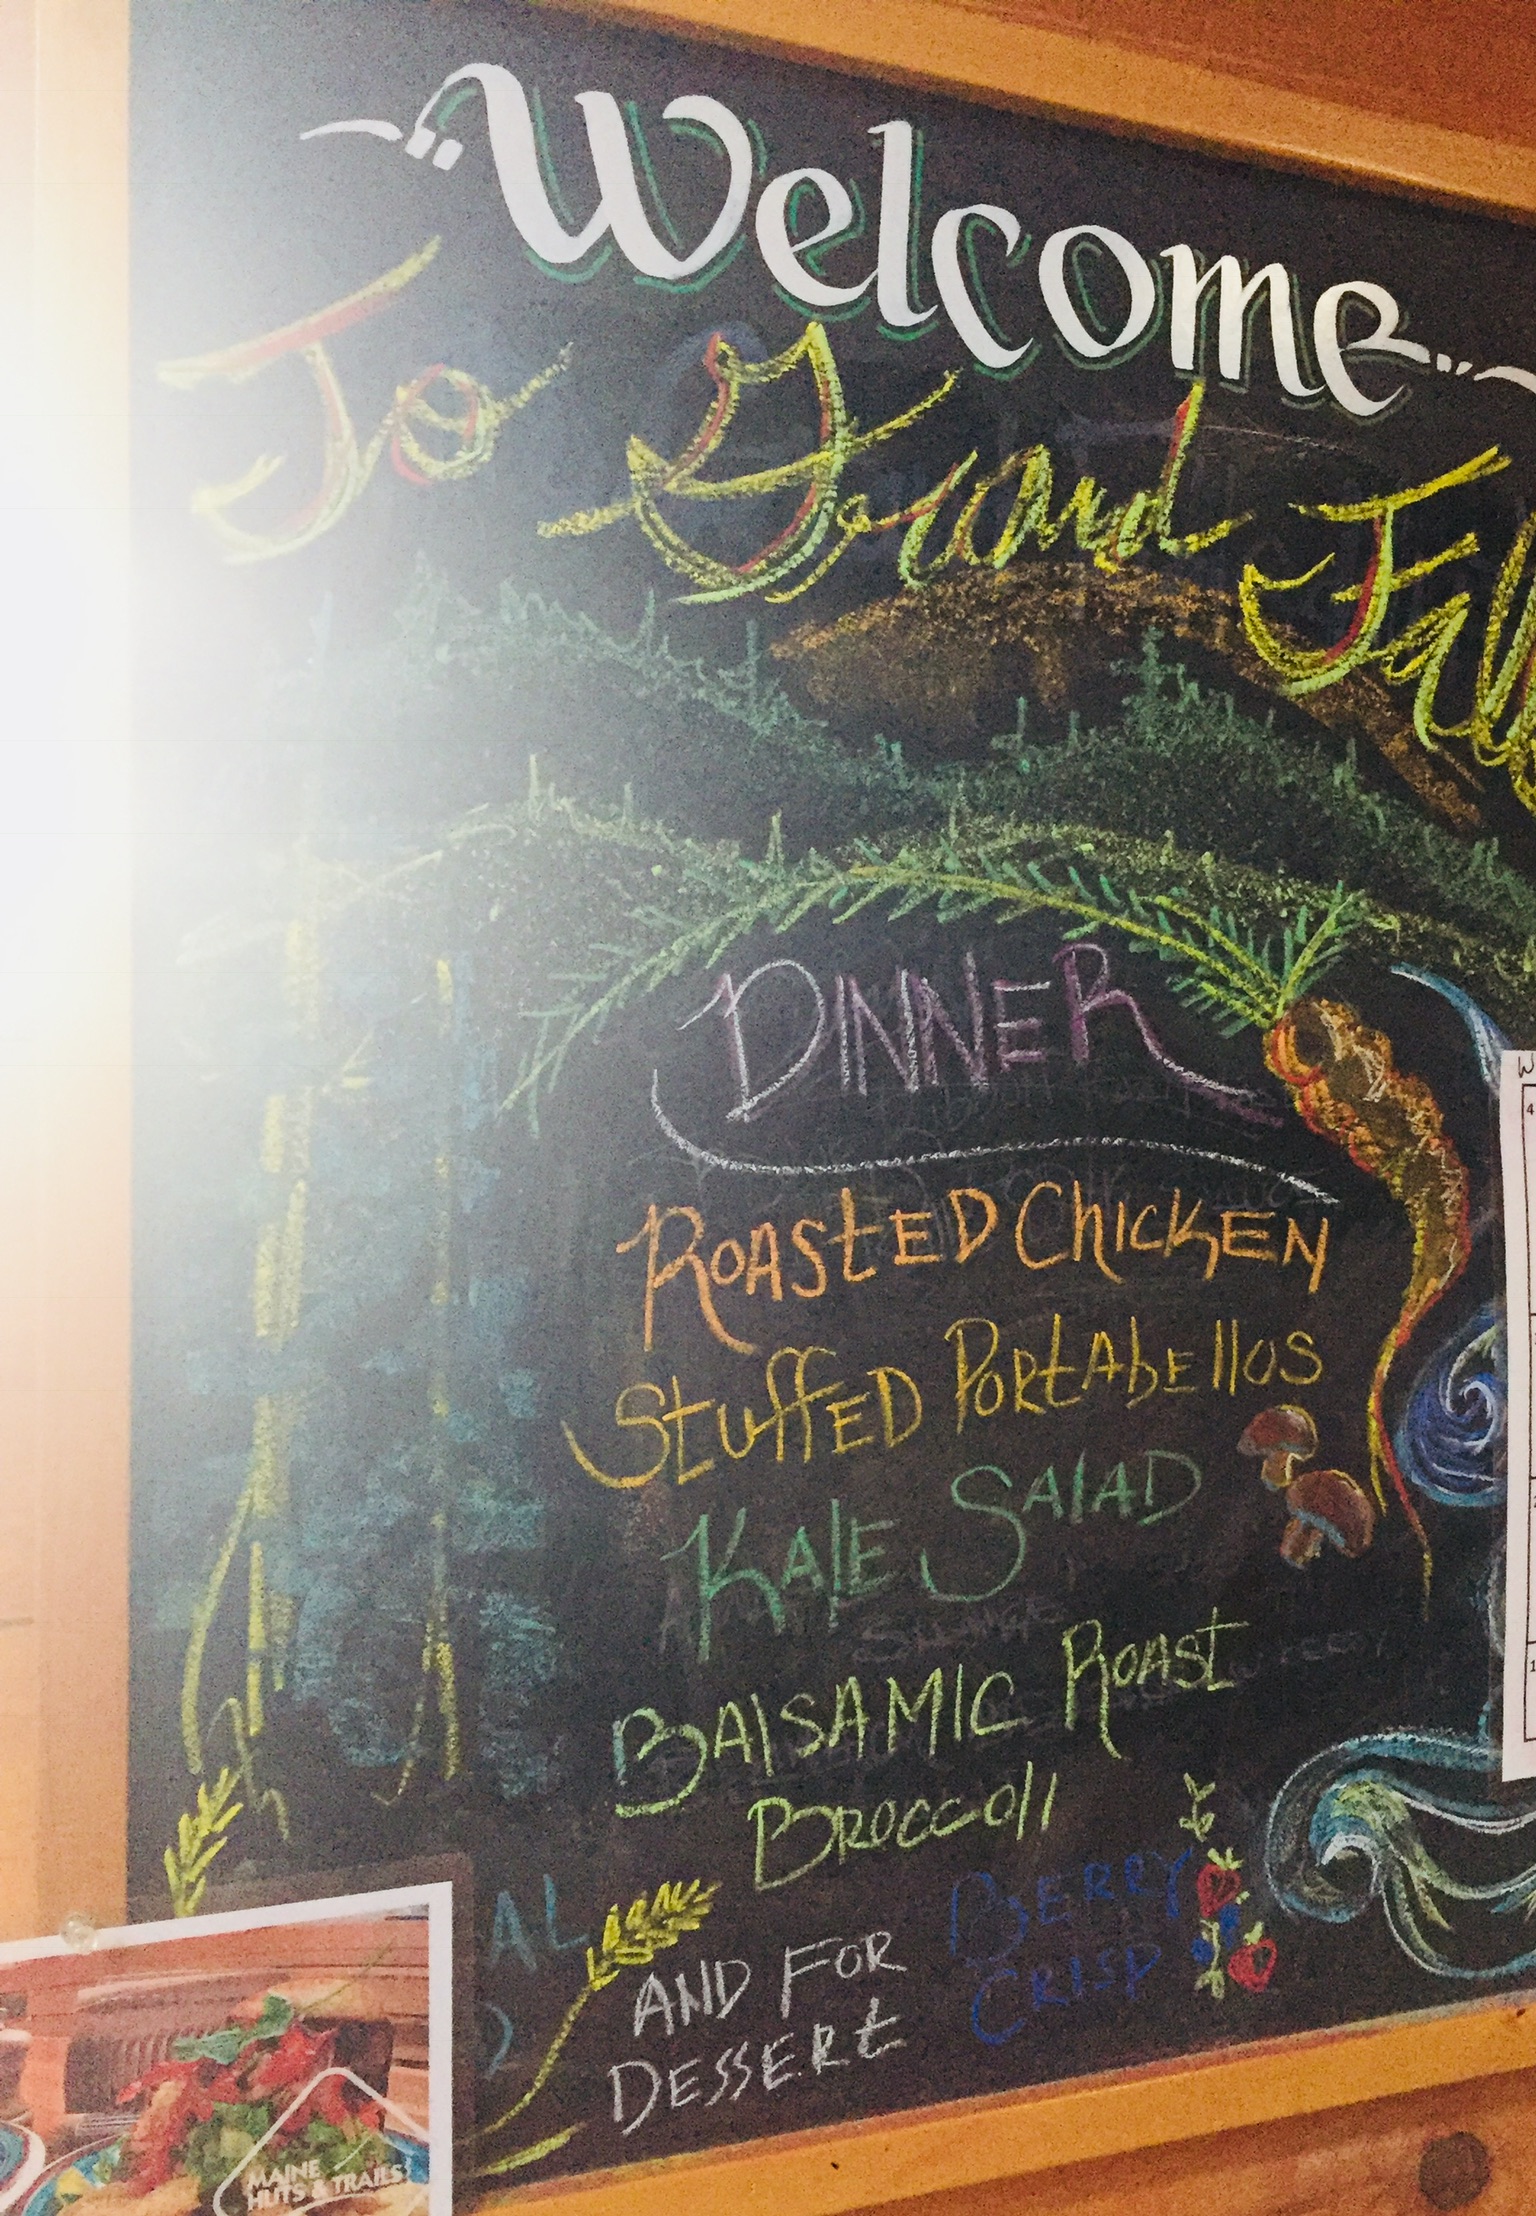 Welcome
To Grand Fall
DINNER
ROASTED CHICKEN
STUFFED PORTABELLOS
KALE SALAD
BALSAMIC ROAST
BROCCOLI
BERRY
CRISP
AND FOR
DESSERT
AL
MAINE
HUTS & TRAILS